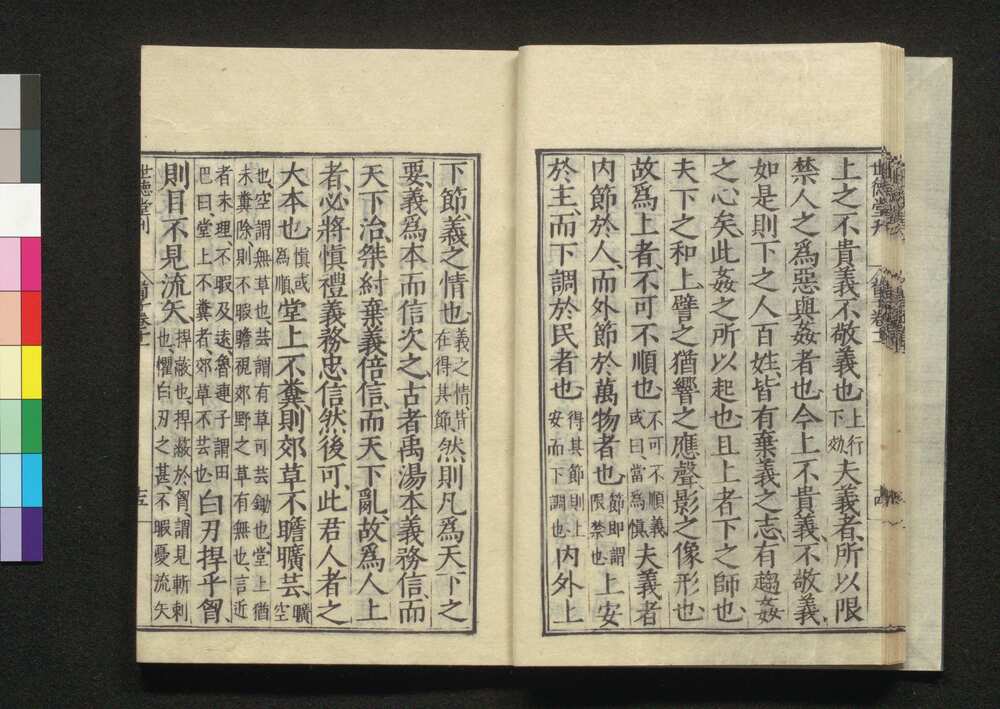 上之不貴義、不敬義也、上行下効、夫義者、所以限
禁人之爲惡與姦者也、今上不貴義、不敬義、
如是則下之人百姓、皆有棄義之志、有趨姦
之心矣、此姦之所以起也、且上者下之師也、
夫下之和上、譬之猶響之應聲、影之像形也、
故爲上者、不可不順也、不可不順義、或曰、當爲愼、夫義者
内節於人、而外節於萬物者也、節即謂限禁也、上安
於主、而下調於民者也、得其節則上安而下調也、内外上
下節、義之情也、義之情、皆在得其節、然則凡爲天下之
要、義爲本而信次之、古者禹湯本義務信、而
天下治、桀紂棄義倍信、而天下亂、故爲人上
者、必將愼禮義務忠信然後可、此君人者之
大本也、愼或爲順、堂上不糞、則郊草不瞻曠芸、曠空
也、空謂無草也、芸謂有草可芸鋤也、堂上猶
未糞除、則不暇瞻視郊野之草有無也、言近
者未理、不暇及遠、魯連子謂田
巴曰、堂上不糞者、郊草不芸也、白刃捍乎胷、
則目不見流矢、捍蔽也、捍蔽於胷、謂見斬刺
也、懼白刃之甚、不暇憂流矢
世德堂刊
世德堂刊